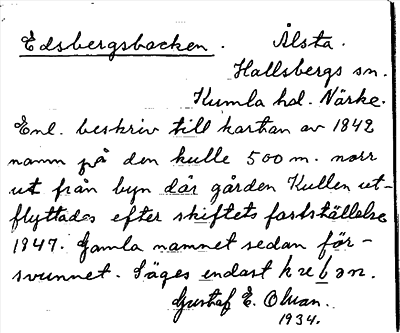 Edsbergsbacken. Ålsta.
Hallsbergs sn.
Kumla hd. Närke.
Enl. beskriv till kartan av 1842
namn på den kulle 500 m. norr
ut från byn där gården Kullen ut-
flyttades efter skiftets fastställelse
1847. Gamla namnet sedan för-
svunnet. Säges endast
Gustaf E. Olsson.
1934.